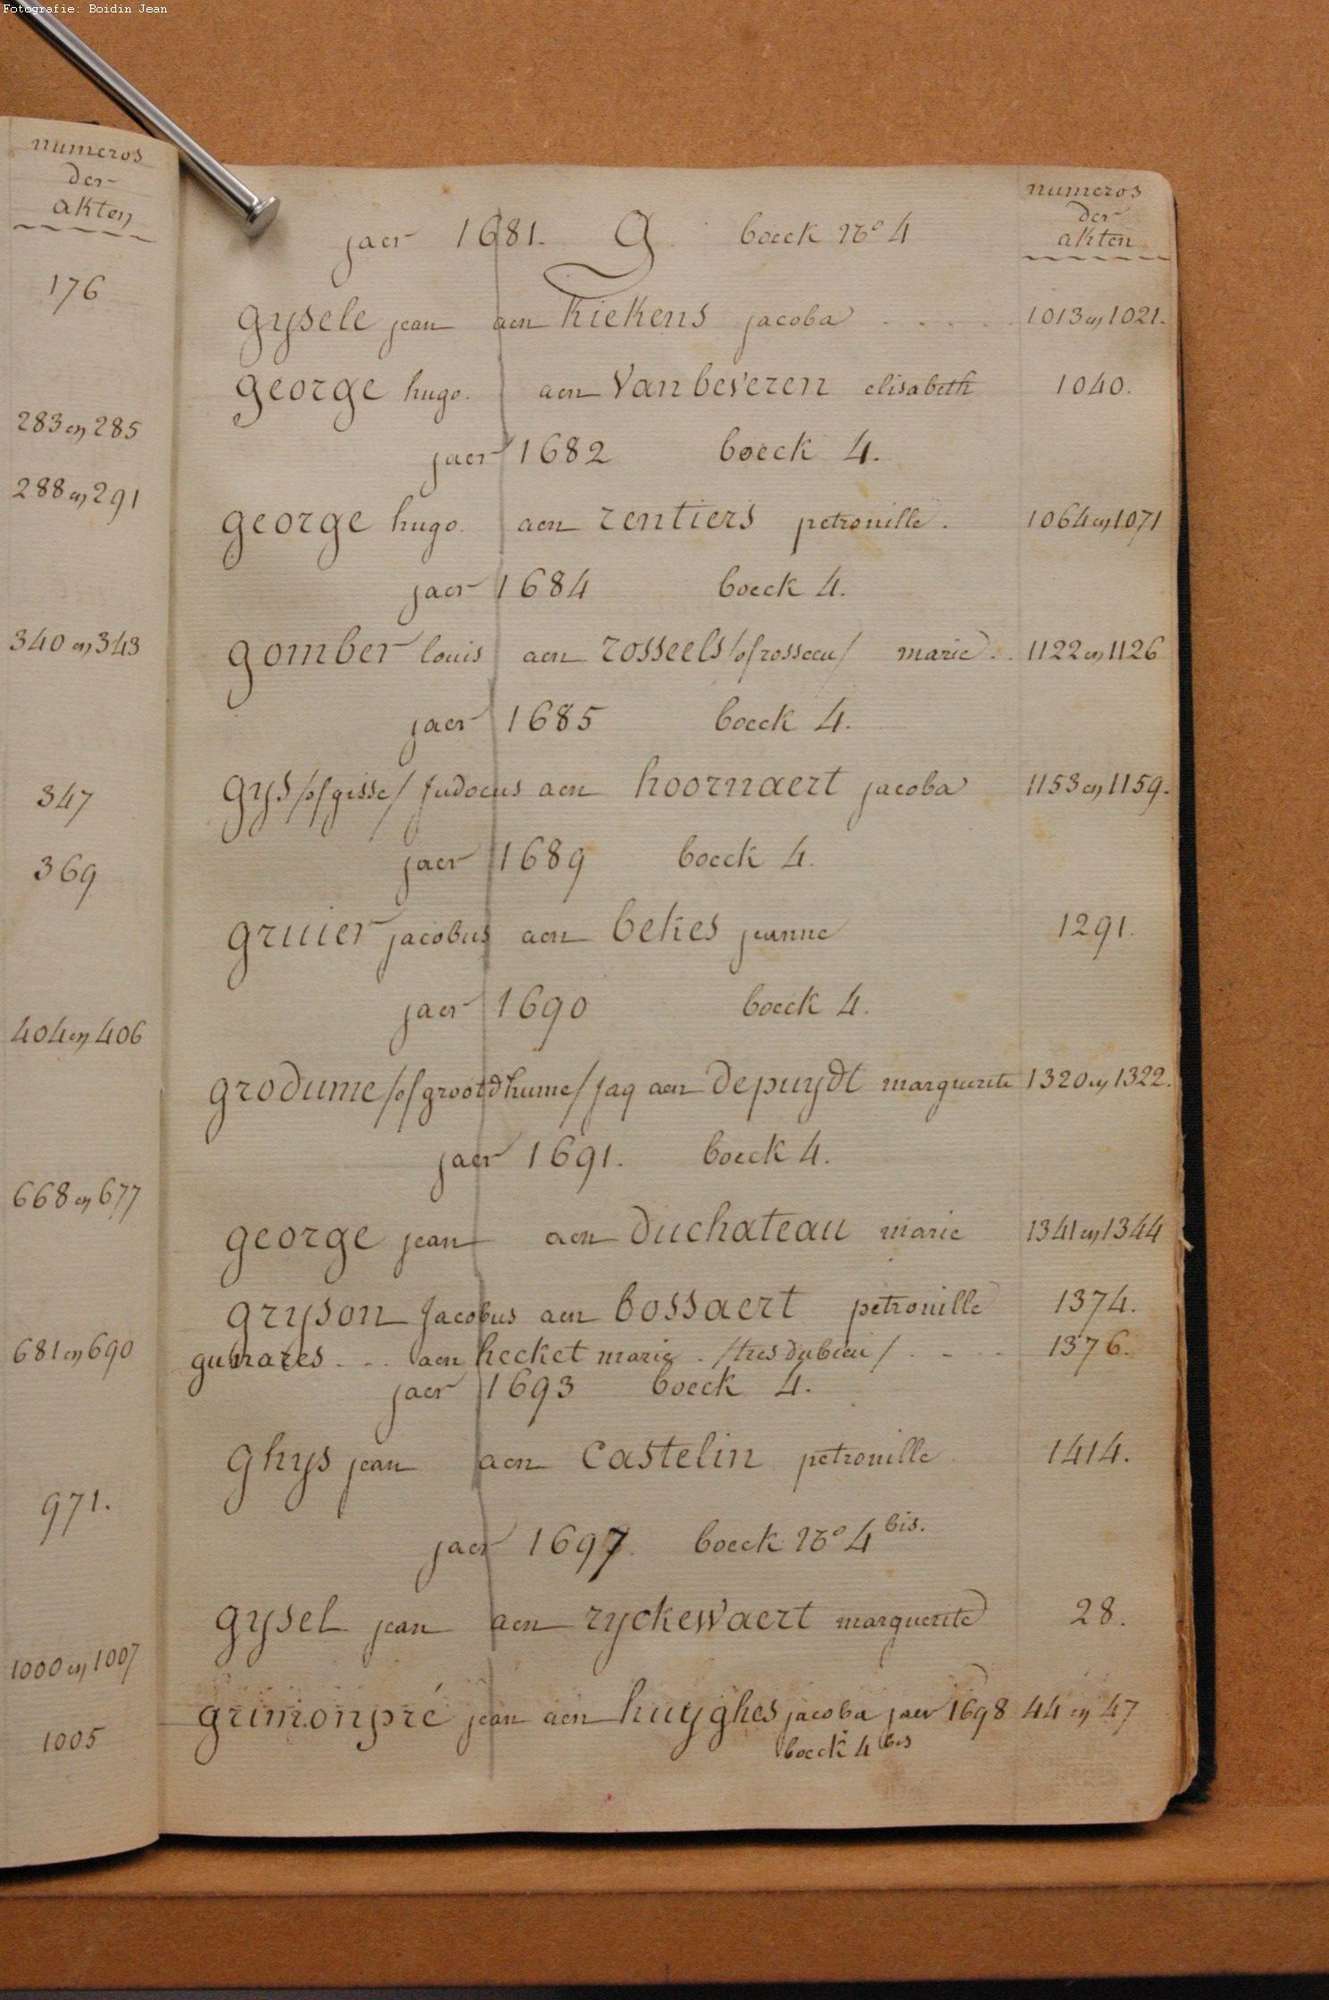 Fotografie: Boidin Jean
numeros
der
akten
176
283 en 285
288 en 291
340 en 343
347
369
404 en 406
668 en 677
681 en 690
971.
1000 en 1007
1005
numeros
der
akten
jaer 1681. G boeck No 4
gysele jean aen kiekens jacoba ..... 1013 en 1021.
george hugo. aen Vanbeveren elisabeth 1040.
jaer 1682 boeck 4.
george hugo. aen rentiers petronille. 1064 en 1071
jaer 1684 boeck 4.
gomber louis aen rosseels /of rosseeu/ marie .. 1122 en 1126
jaer 1685 boeck 4.
gys /of gisse/ judocus aen hoornaert jacoba 1153 en 1159.
jaer 1689 boeck 4.
gruier jacobus aen bekes jeanne 1291.
jaer 1690 boeck 4.
grodume /of grootdhume/ jaq aen depuydt marguerite 1320 en 1322.
jaer 1691. boeck 4.
george jean aen duchateau marie 1341 en 1344
gryson jacobus aen bossaert petronille 1374.
aen hecket marie . /tres dubieu/ . - - - 1376.
jaer 1693 boeck 4.
ghys jean aen castelin petronille 1414.
jaer 1697. boeck No 4 bis.
gysel jean aen ryckewaert marguerite 28.
grimonpré jean aen huyghes jacoba jaer 1698 44 en 47
boeck 4 bis